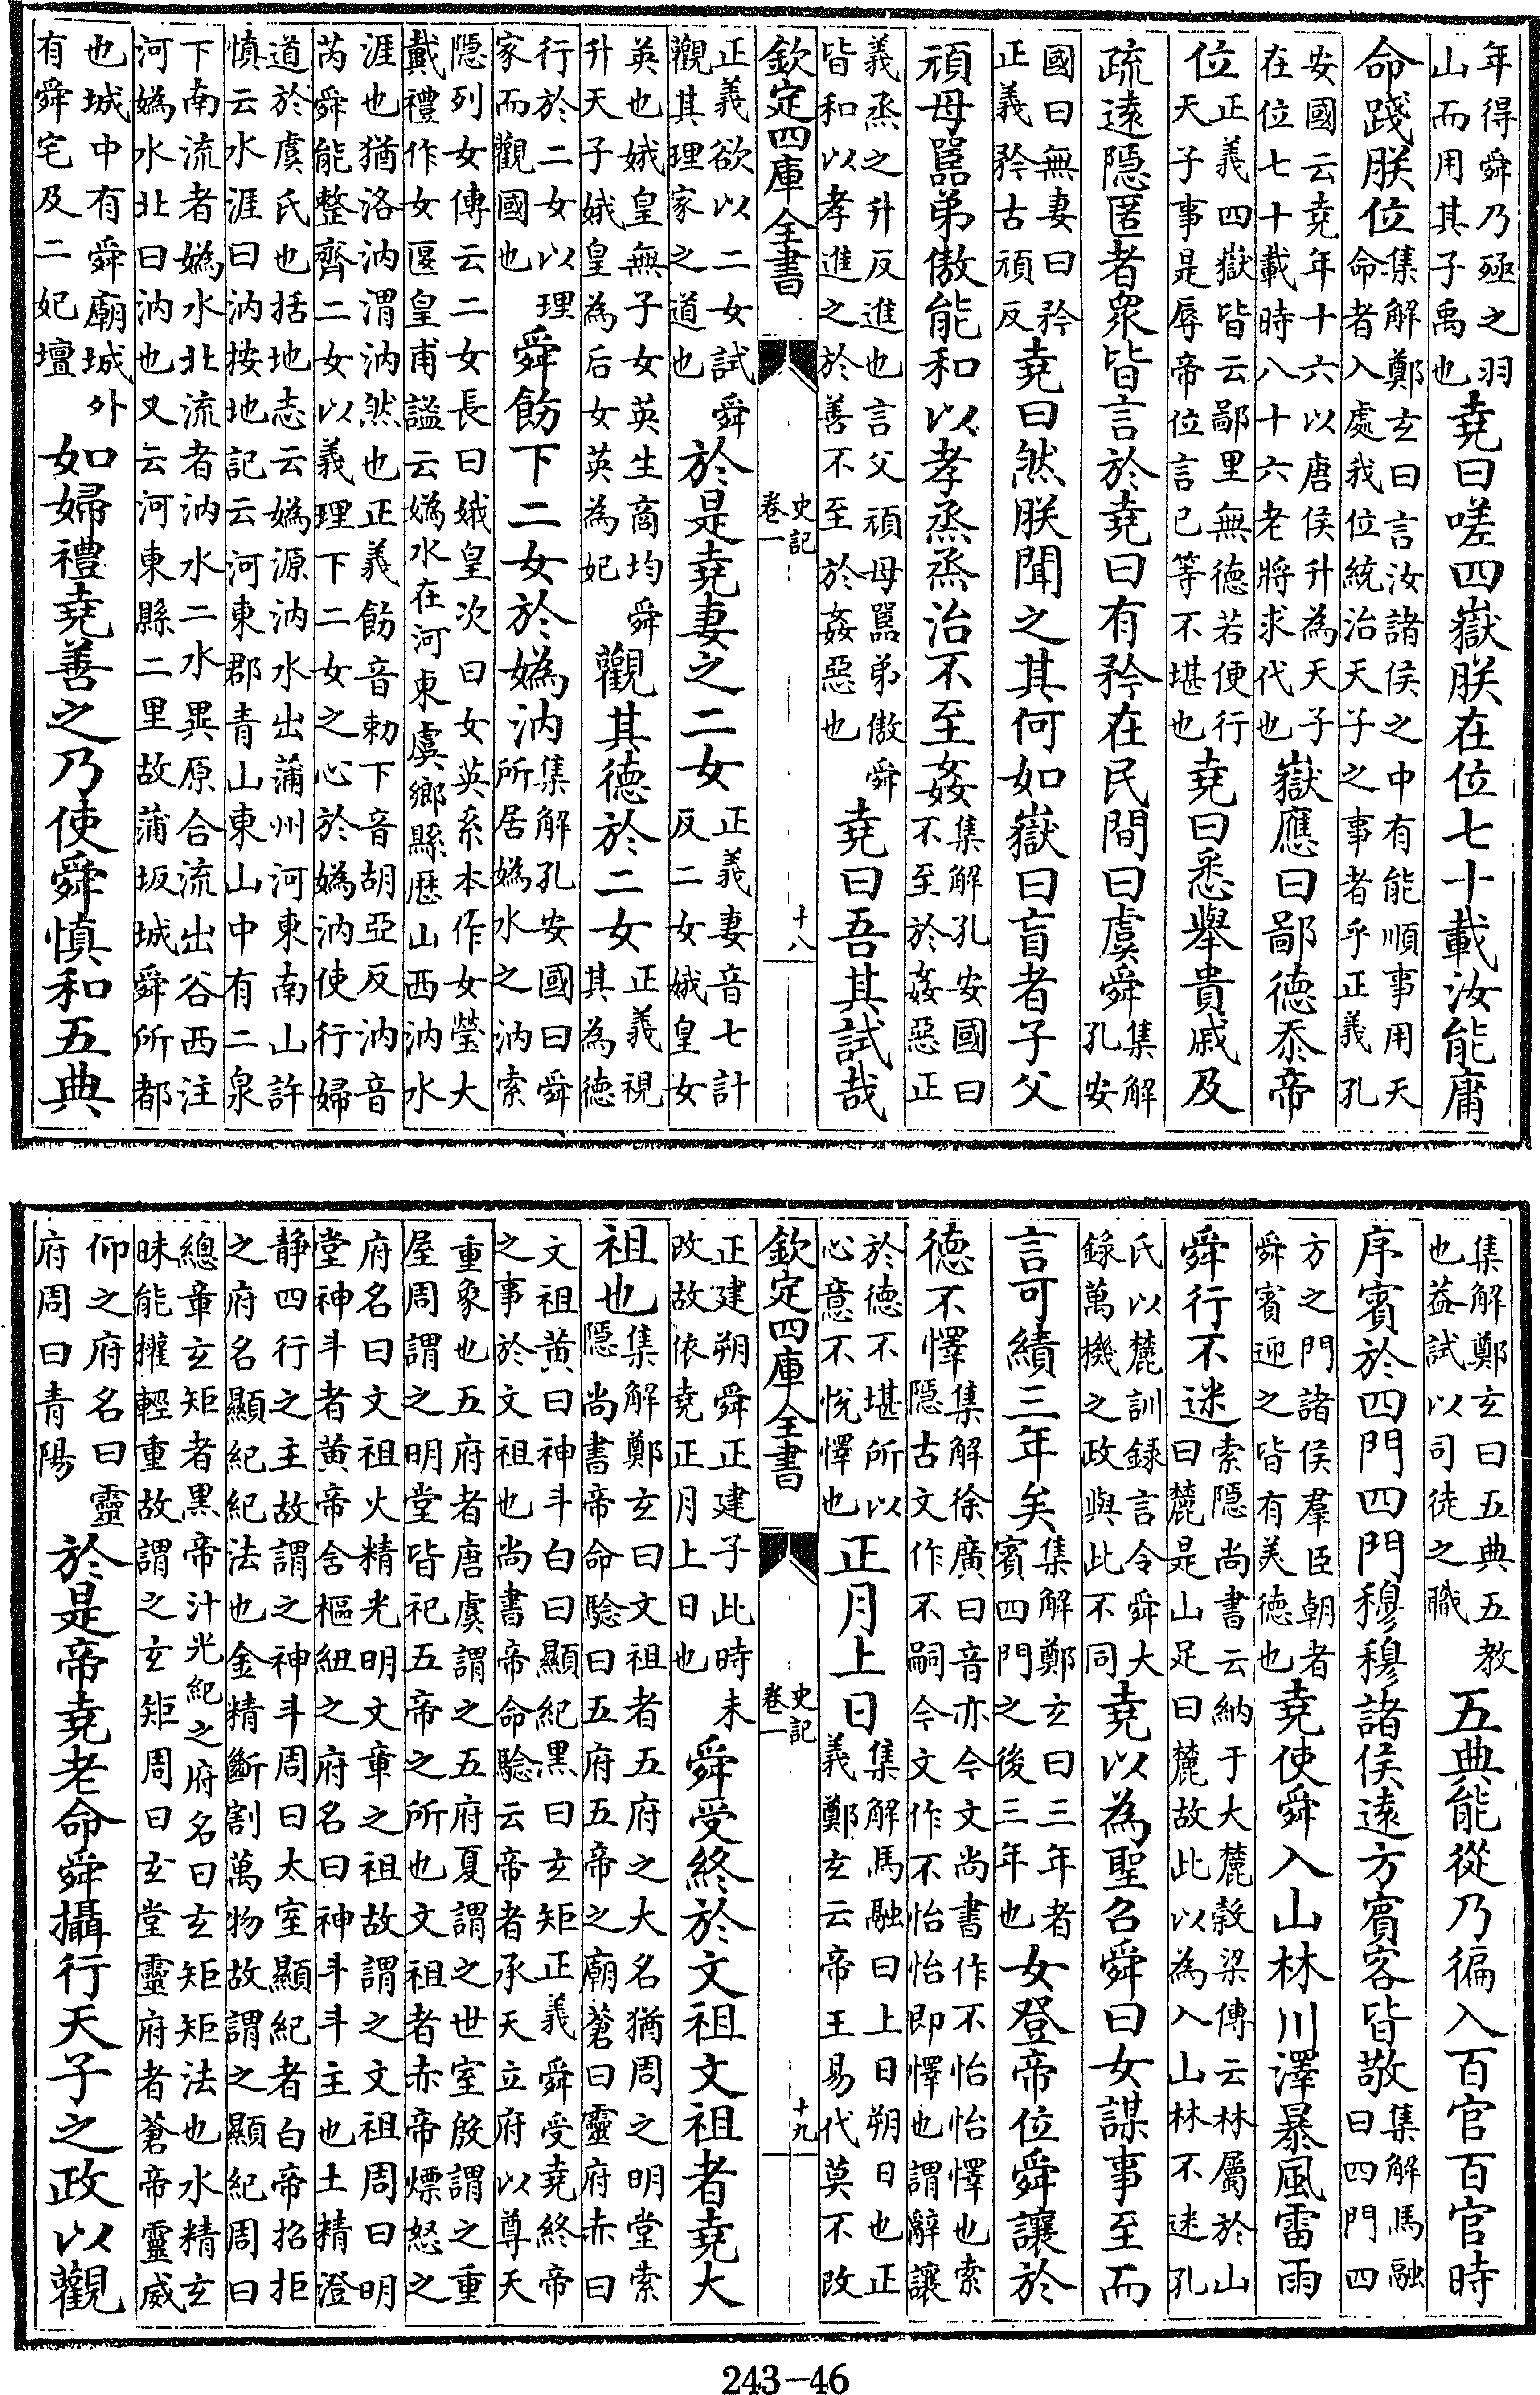 年得舜乃殛之羽山而用其子禹也堯曰嗟四嶽朕在位七十載汝能庸
命踐朕位集解鄭玄曰言汝諸侯之中有能順事用天命者入處我位統治天子之事者乎正義孔
安國云堯年十六以唐侯升為天子在位七十載時八十六老將求代也嶽應曰鄙德忝帝
位正義四嶽皆云鄙里無德若便行天子事是辱帝位言己等不堪也堯曰悉舉貴戚及
疏遠隱匿者衆皆言於堯曰有矜在民間曰虞舜集解孔安
國曰無妻曰矜正義矜古頑反堯曰然朕聞之其何如嶽曰盲者子父
頑母嚚弟傲能和以孝烝烝治不至姦集解孔安國曰不至於姦惡正
義烝之升反進也言父頑母嚚弟傲舜皆和以孝進之於善不至於姦惡也堯曰吾其試哉
欽定四庫全書 史記卷一 十八
正義欲以二女試舜觀其理家之道也於是堯妻之二女正義妻音七計反二女娥皇女
英也娥皇無子女英生商均舜升天子娥皇為后女英為妃觀其德於二女正義視其為德
行於二女以理家而觀國也舜飭下二女於媯汭集解孔安國曰舜所居媯水之汭索
隱列女傳云二女長曰娥皇次曰女英系本作女瑩大戴禮作女匽皇甫謐云媯水在河東虞鄉縣歷山西汭水
涯也猶洛汭渭汭然也正義飭音勅下音胡亞反汭音芮舜能整齊二女以義理下二女之心於媯汭使行婦
道於虞氏也括地志云媯源汭水出蒲州河東南山許慎云水涯曰汭按地記云河東郡青山東山中有二泉
下南流者媯水北流者汭水二水異原合流出谷西注河媯水北曰汭也又云河東縣二里故蒲坂城舜所都
也城中有舜廟城外有舜宅及二妃壇如婦禮堯善之乃使舜慎和五典
集解鄭玄曰五典五教也葢試以司徒之職五典能從乃徧入百官百官時
序賓於四門四門穆穆諸侯遠方賓客皆敬集解馬融曰四門四
方之門諸侯羣臣朝者舜賓迎之皆有美德也堯使舜入山林川澤暴風雷雨
舜行不迷索隱尚書云納于大麓穀梁傳云林屬於山曰麓是山足曰麓故此以為入山林不迷孔
氏以麓訓録言令舜大錄萬機之政與此不同堯以為聖召舜曰女謀事至而
言可績三年矣集解鄭玄曰三年者賓四門之後三年也女登帝位舜讓於
德不懌集解徐廣曰音亦今文尚書作不怡怡懌也索隱古文作不嗣今文作不怡怡即懌也謂辭讓
於德不堪所以心意不悅懌也正月上日集解馬融曰上日朔日也正義鄭玄云帝王易代莫不改
欽定四庫全書 史記卷一 十九
正建朔舜正建子此時未改故依堯正月上日也舜受終於文祖文祖者堯大
祖也集解鄭玄曰文祖者五府之大名猶周之明堂索隱尚書帝命驗曰五府五帝之廟蒼曰靈府赤曰
文祖黃曰神斗白曰顯紀黑曰玄矩正義舜受堯終帝之事於文祖也尚書帝命驗云帝者承天立府以尊天
重象也五府者唐虞謂之五府夏謂之世室殷謂之重屋周謂之明堂皆祀五帝之所也文祖者赤帝熛怒之
府名曰文祖火精光明文章之祖故謂之文祖周曰明堂神斗者黃帝含樞紐之府名曰神斗斗主也土精澄
静四行之主故謂之神斗周曰太室顯紀者白帝招拒之府名顯紀紀法也金精斷割萬物故謂之顯紀周曰
總章玄矩者黑帝汁光紀之府名曰玄矩矩法也水精玄昧能攉輕重故謂之玄矩周曰玄堂靈府者蒼帝靈威
仰之府名曰靈府周曰青陽於是帝堯老命舜攝行天子之政以觀
243-46